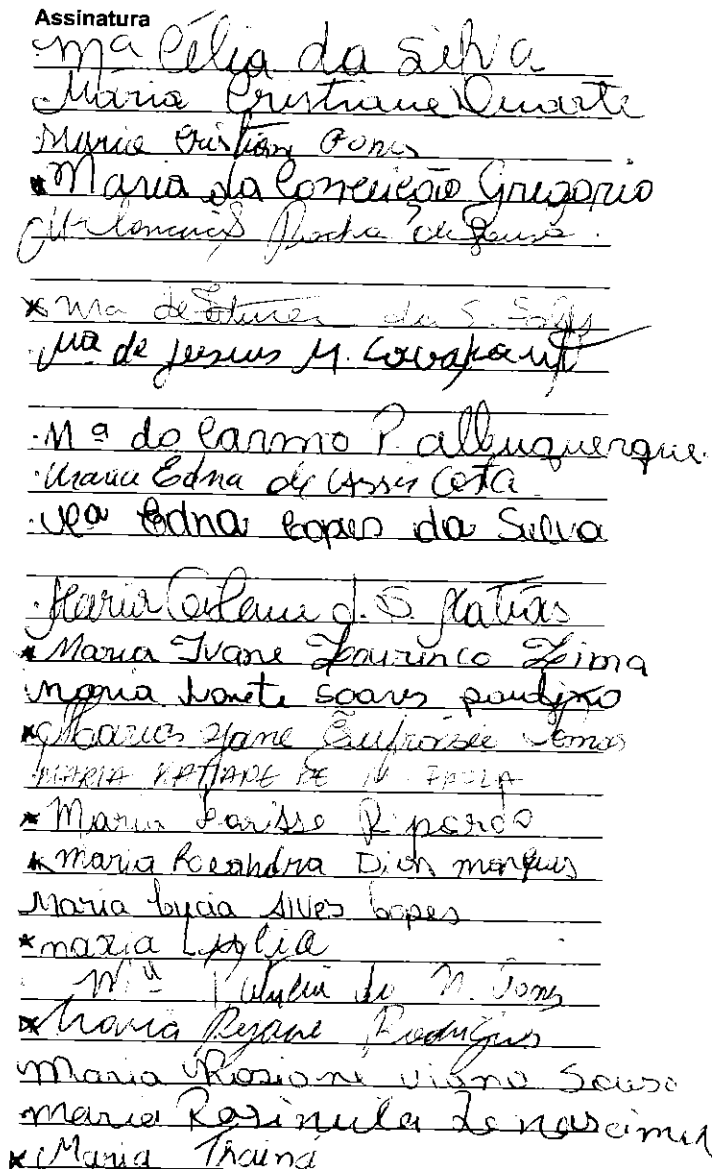 Assinatura
Mª Célia da Silva
Maria Cristiane Duarte
Maria Cristian Gomes
Maria da Conceição Gregorio
Rocha de Sousa
Mª de Fatima da S. Sales
Mª de Jesus M. Cavalcant
Mª do Carmo P. albuquerque
Maria Edna de Assis Costa
Mª Edna Lopes da Silva
Maria d. S. Matias
Maria Ivane Lourinco Lima
Maria Ivonete Soares paudino
Maria Jane Eufrásie Lemos
MARIA KATIANE DE N. PAULA
Maria Larisse Ripardo
Maria Leeandra Dias marques
Maria Lucia Alves Lopes
maria
Mª do N.
Maria Rejane Rodrigues
Maria Rosione viana Sousa
maria Rosinula do nascimen
Maria Thainá